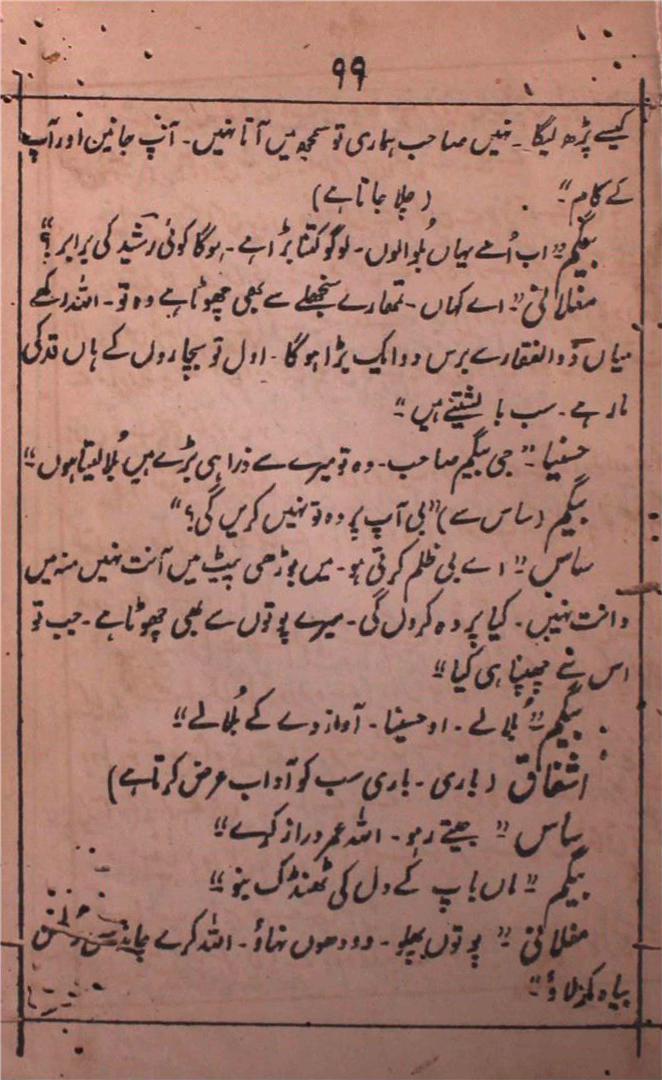 ۹۹
کیسے پڑھ لیگا ۔ نہیں صاحب ہماری تو سمجھ میں آتا نہیں ۔ آپ جانیں اور آپ
کے کام“ (چلا جاتا ہے)
بیگم ”اب اُسے یہاں بُلوا لوں ۔ لوگو کتنا بڑا ہے ۔ ہوگا کوئی رشید کی برابر؟“
مغلانی ”اے کہاں ۔ تمھارے منجھلے سے بھی چھوٹا ہے وہ تو ۔ اللہ رکھے
میاں ذوالفقار سے برس دو ایک بڑا ہوگا ۔ اول تو بیچاروں کے ہاں قد کی
مار ہے ۔ سب بالشتیے ہیں“
حسنیا ”جی بیگم صاحب ۔ وہ تو میرے سے ذرا ہی بڑے ہیں بُلا لیتا ہوں“
بیگم (ساس سے) ”بی آپ پردہ تو نہیں کریں گی؟“
ساس ”اے بی ظلم کرتی ہو ۔ میں بوڑھی پیٹ میں آنت نہیں منہ میں
دانت نہیں ۔ کیا پردہ کروں گی ۔ میرے پوتوں سے بھی چھوٹا ہے ۔ جب تو
اس نے چھپنا ہی کیا“
بیگم ”بُلا لے ۔ او حسینا ۔ آواز دے کے بُلا لے“
اشفاق (باری ۔ باری سب کو آداب عرض کرتا ہے)
ساس ”جیتے رہو ۔ اللہ عمر دراز کرے“
بیگم ”ماں باپ کے دل کی ٹھنڈک بنو“
مغلانی ”پوتوں پھلو ۔ دودھوں نہاؤ ۔ اللہ کرے چاند سی دلہن
بیاہ کر لاؤ“